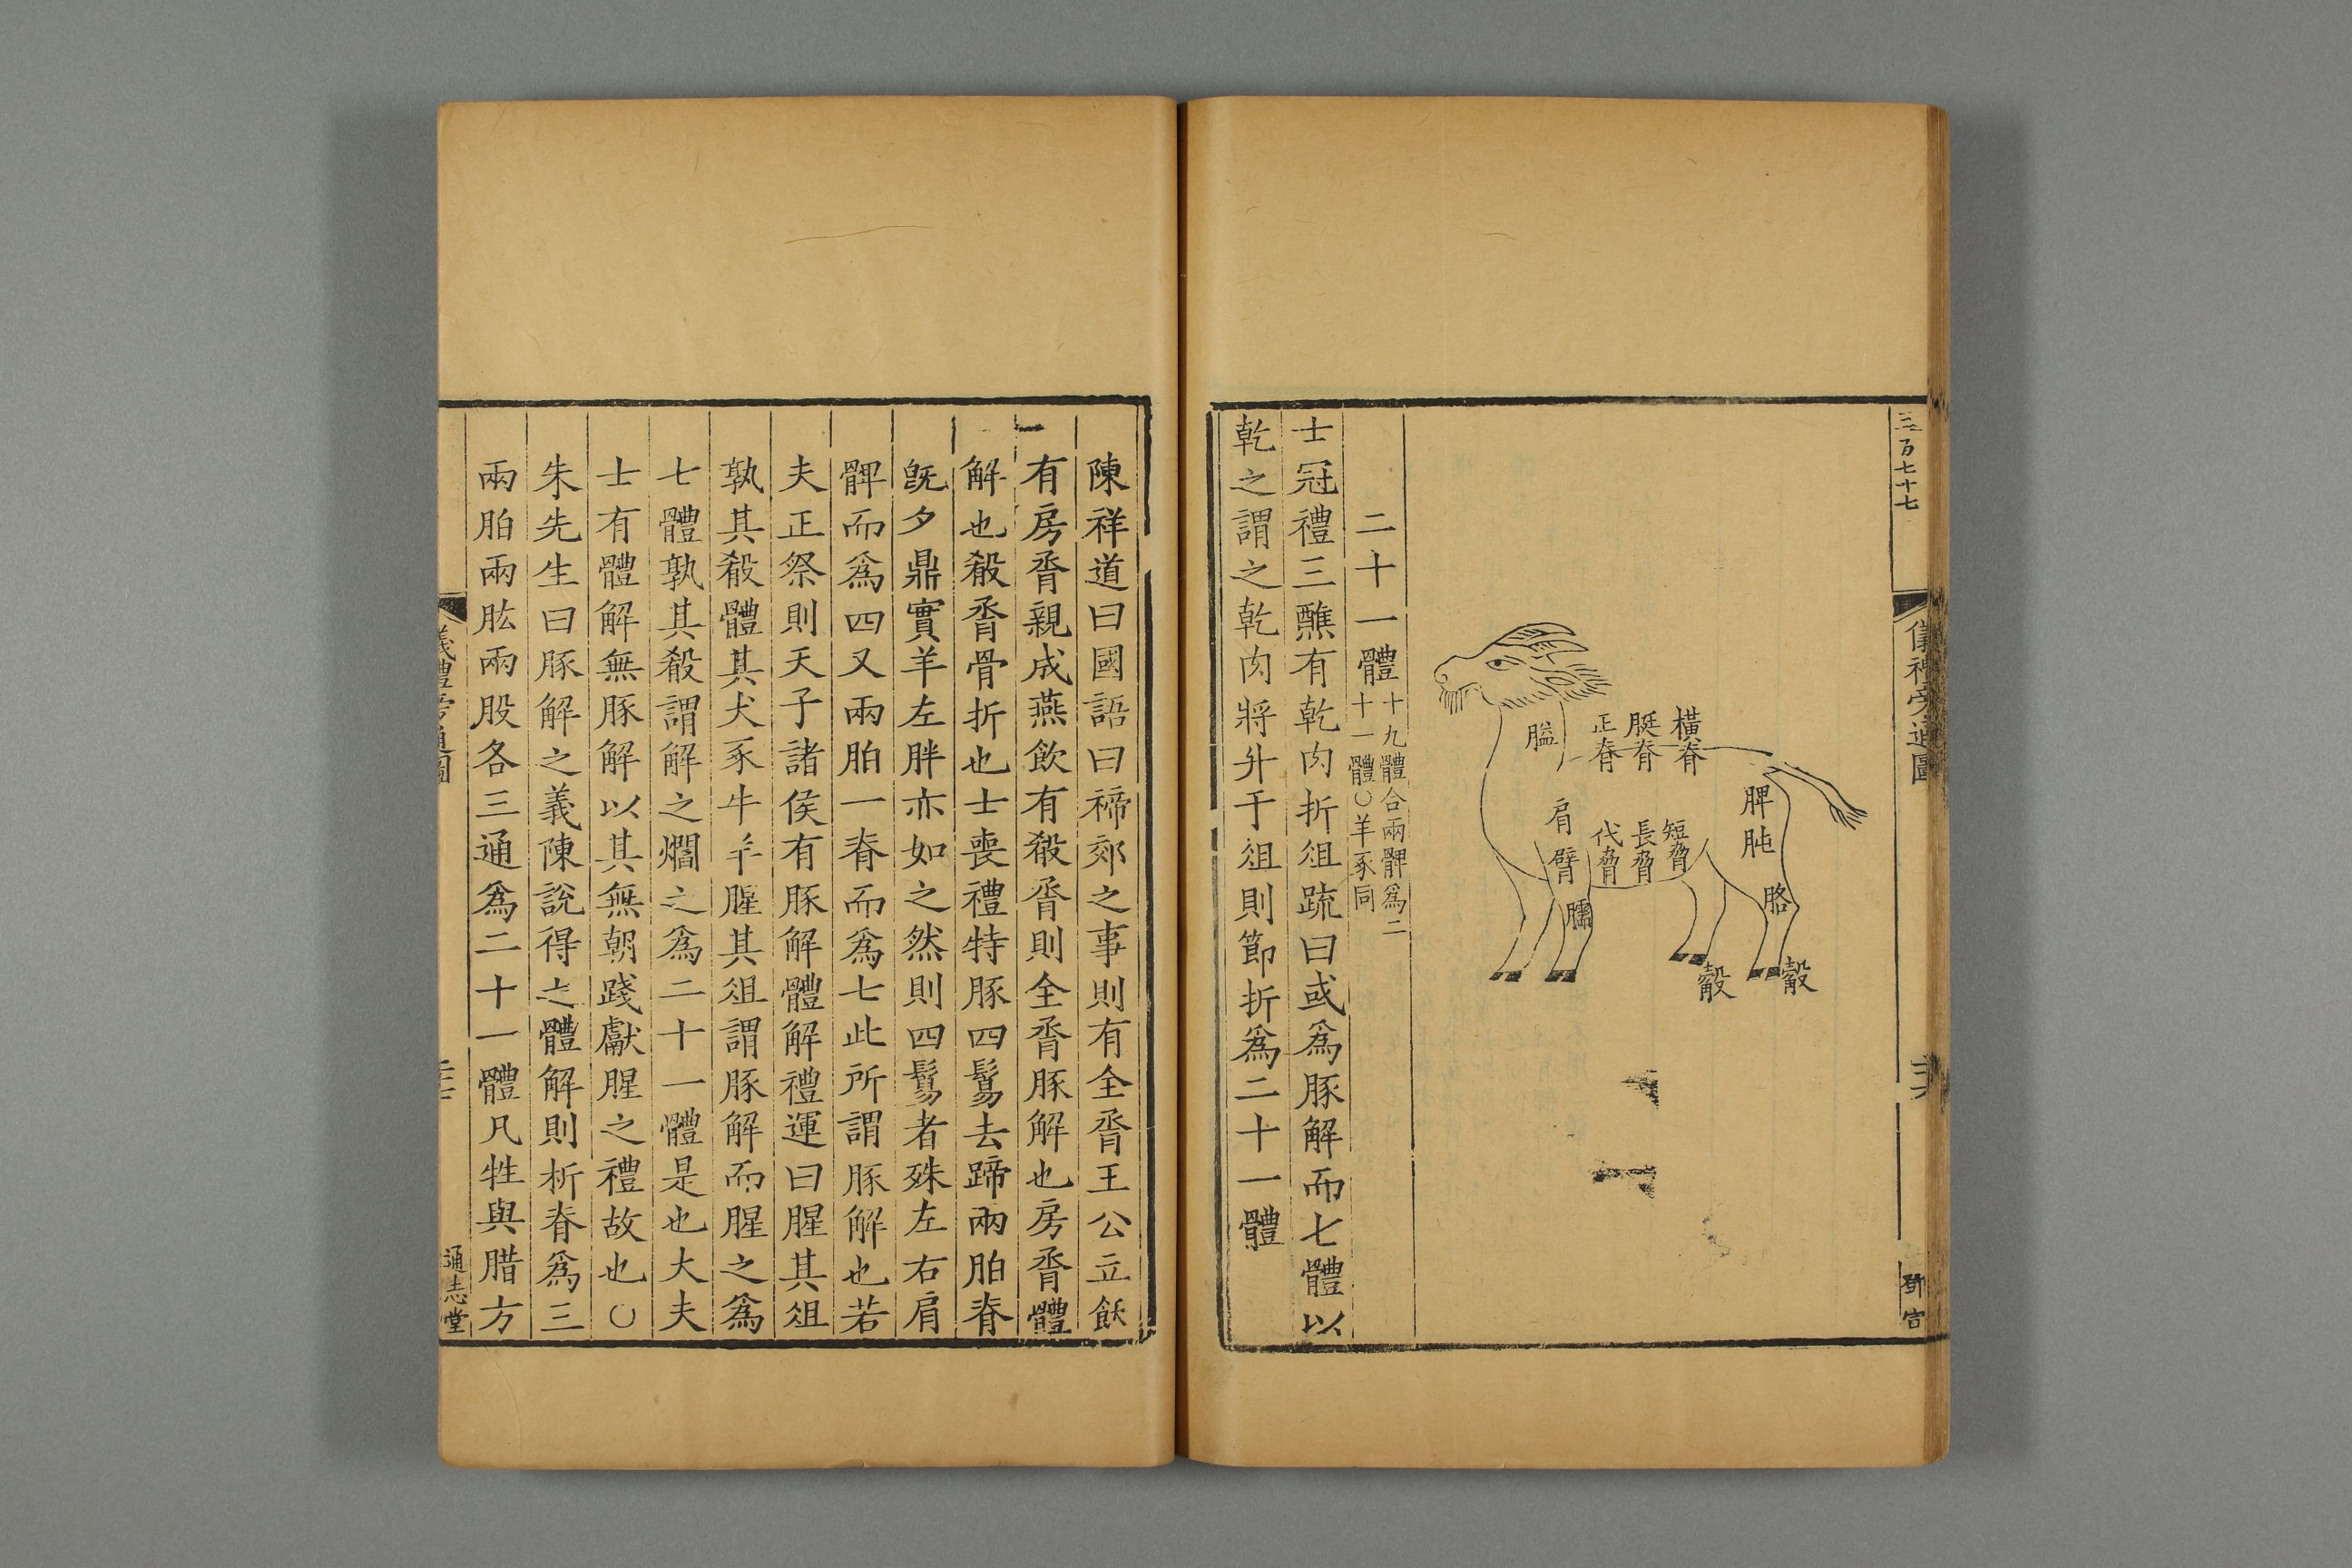 三百七十七
儀禮旁通圖
鄧官
橫脊
脡脊
正脊
膉
脾
肫
胳
觳
觳
短脅
長脅
代脅
肩
臂
臑
二十一體
十九體合兩髀爲二
十一體○羊豕同
士冠禮三醮有乾肉折俎疏曰或爲豚解而七體以
乾之謂之乾肉將升于俎則節折爲二十一體
陳祥道曰國語曰禘郊之事則有全脀王公立飫
有房脀親戚燕飲有殽脀則全脀豚解也房脀體
解也殽脀骨折也士喪禮特豚四鬄去蹄兩胉脊
旣夕鼎實羊左胖亦如之然則四鬄者殊左右肩
髀而爲四又兩胉一脊而爲七此所謂豚解也若
夫正祭則天子諸侯有豚解體解禮運曰腥其俎
孰其殽體其犬豕牛羊腥其俎謂豚解而腥之爲
七體孰其殽謂解之爓之爲二十一體是也大夫
士有體解無豚解以其無朝踐獻腥之禮故也○
朱先生曰豚解之義陳說得之體解則析脊爲三
兩胉兩肱兩股各三通爲二十一體凡牲與腊方
儀禮旁通圖
通志堂